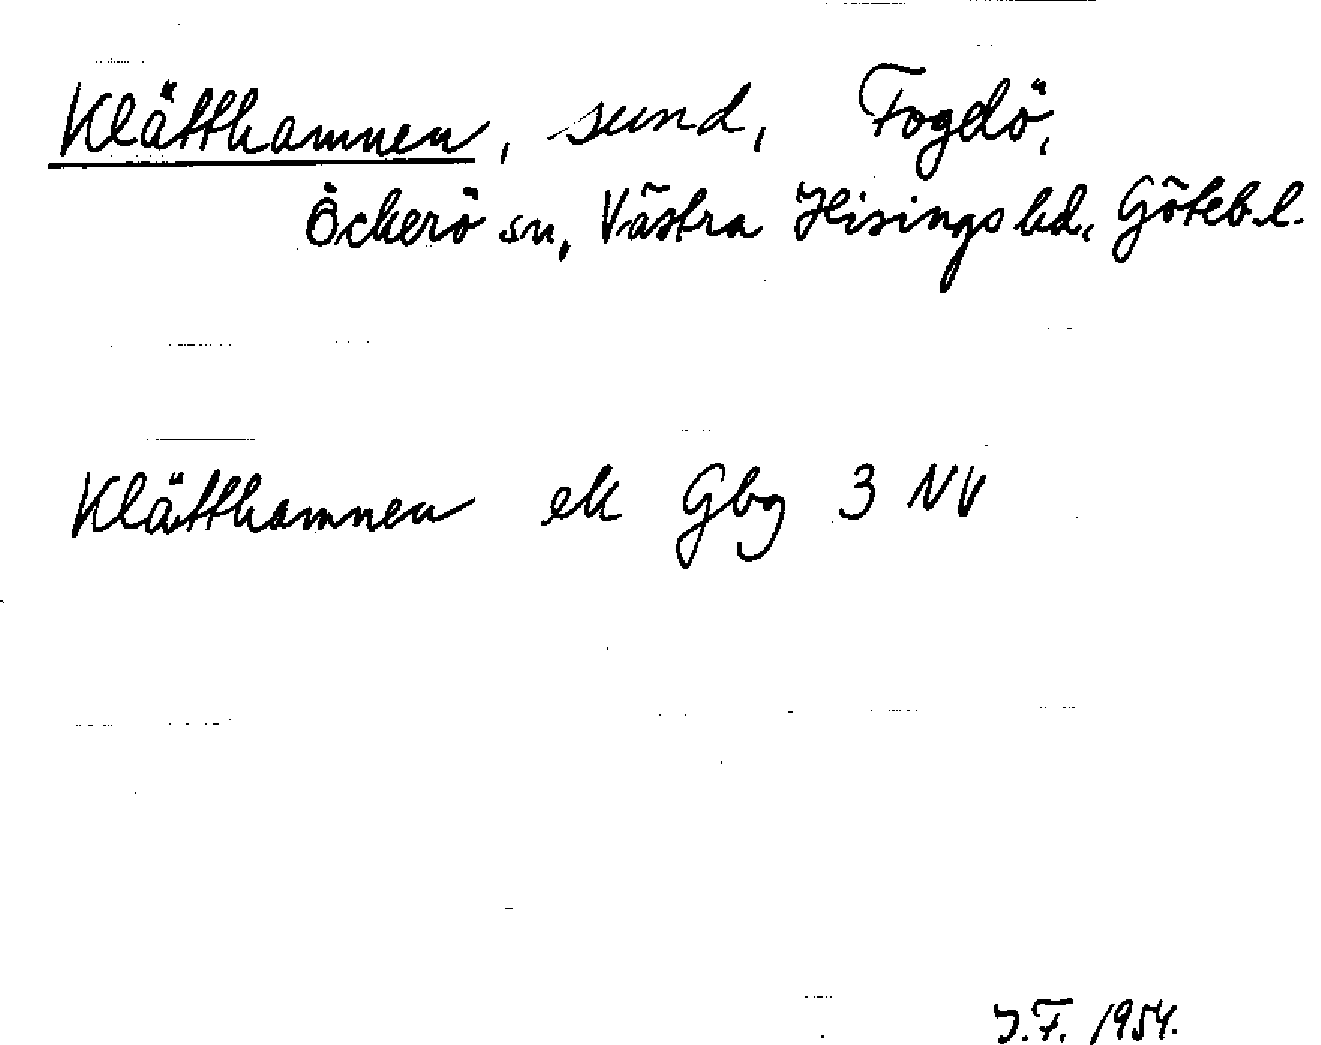 Klätthamnen, sund, Fogdö,
Öckerö sn, Västra Hisings hd, Göteb. l.
Klätthamnen ek Gbg 3 NV
J.F. 1954.